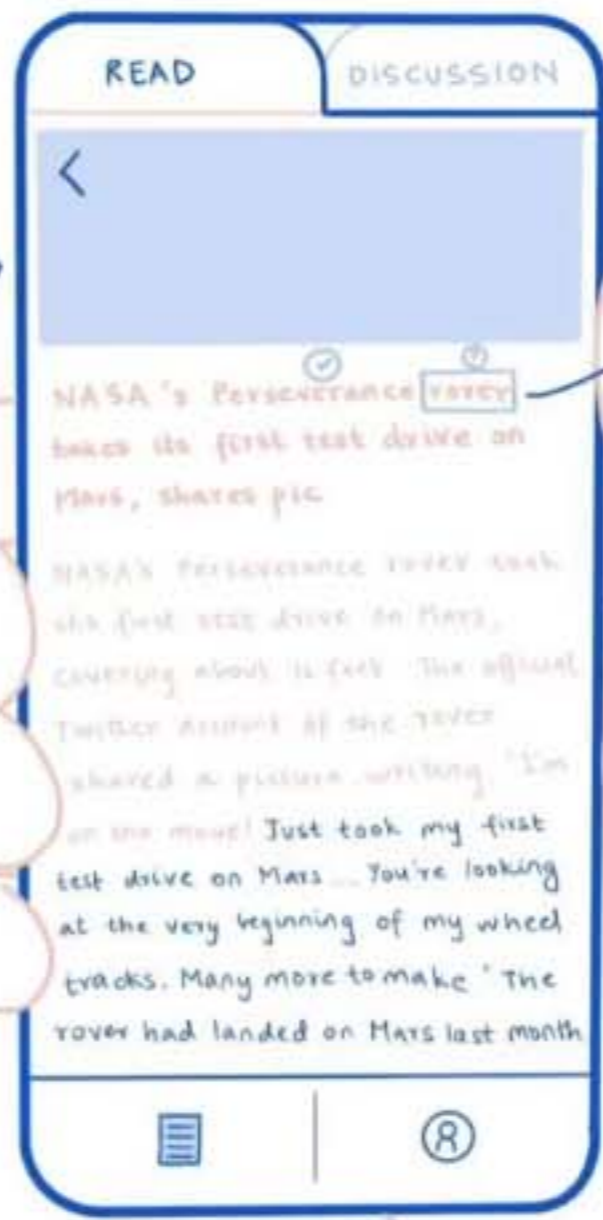 READ
DISCUSSION
NASA's Perseverance rover
takes its first test drive on
Mars, shares pic
NASA's Perseverance rover took
its first test drive on Mars,
covering about feet. The official
Twitter account of the rover
shared a picture writing, "I'm
on the move! Just took my first
test drive on Mars... You're looking
at the very beginning of my wheel
tracks. Many more to make" The
rover had landed on Mars last month